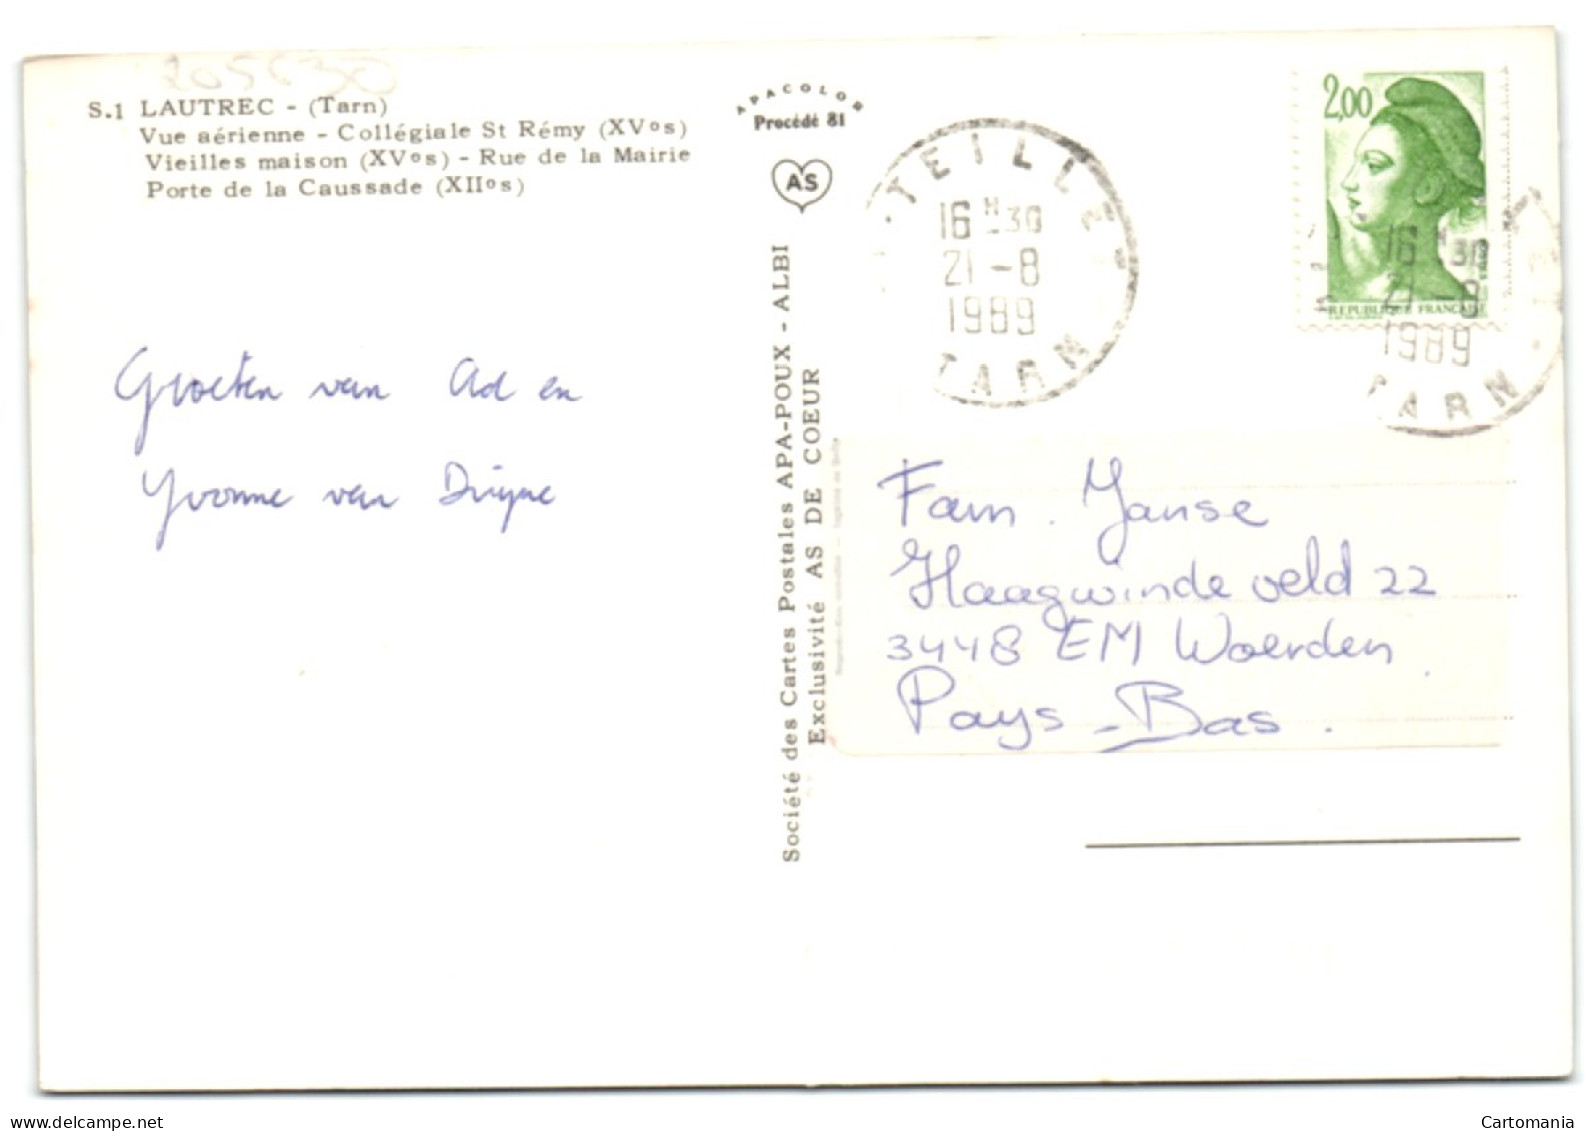 205630
S.1 LAUTREC - (Tarn)
Vue aérienne - Collégiale St Rémy (XVos)
Vieilles maison (XVos) - Rue de la Mairie
Porte de la Caussade (XIIos)
APACOLOR
Procédé 81
AS
Société des Cartes Postales APA-POUX - ALBI
Exclusivité AS DE COEUR
TEILLET
16 H 30
21 - 8
1989
TARN
2,00
REPUBLIQUE FRANÇAISE
16 H 30
21 - 8
1989
TARN
Groeten van Ad en
Yvonne van
Fam. Janse
Haagwinde veld 22
3448 EM Woerden
Pays-Bas.
www.delcampe.net
Cartomania